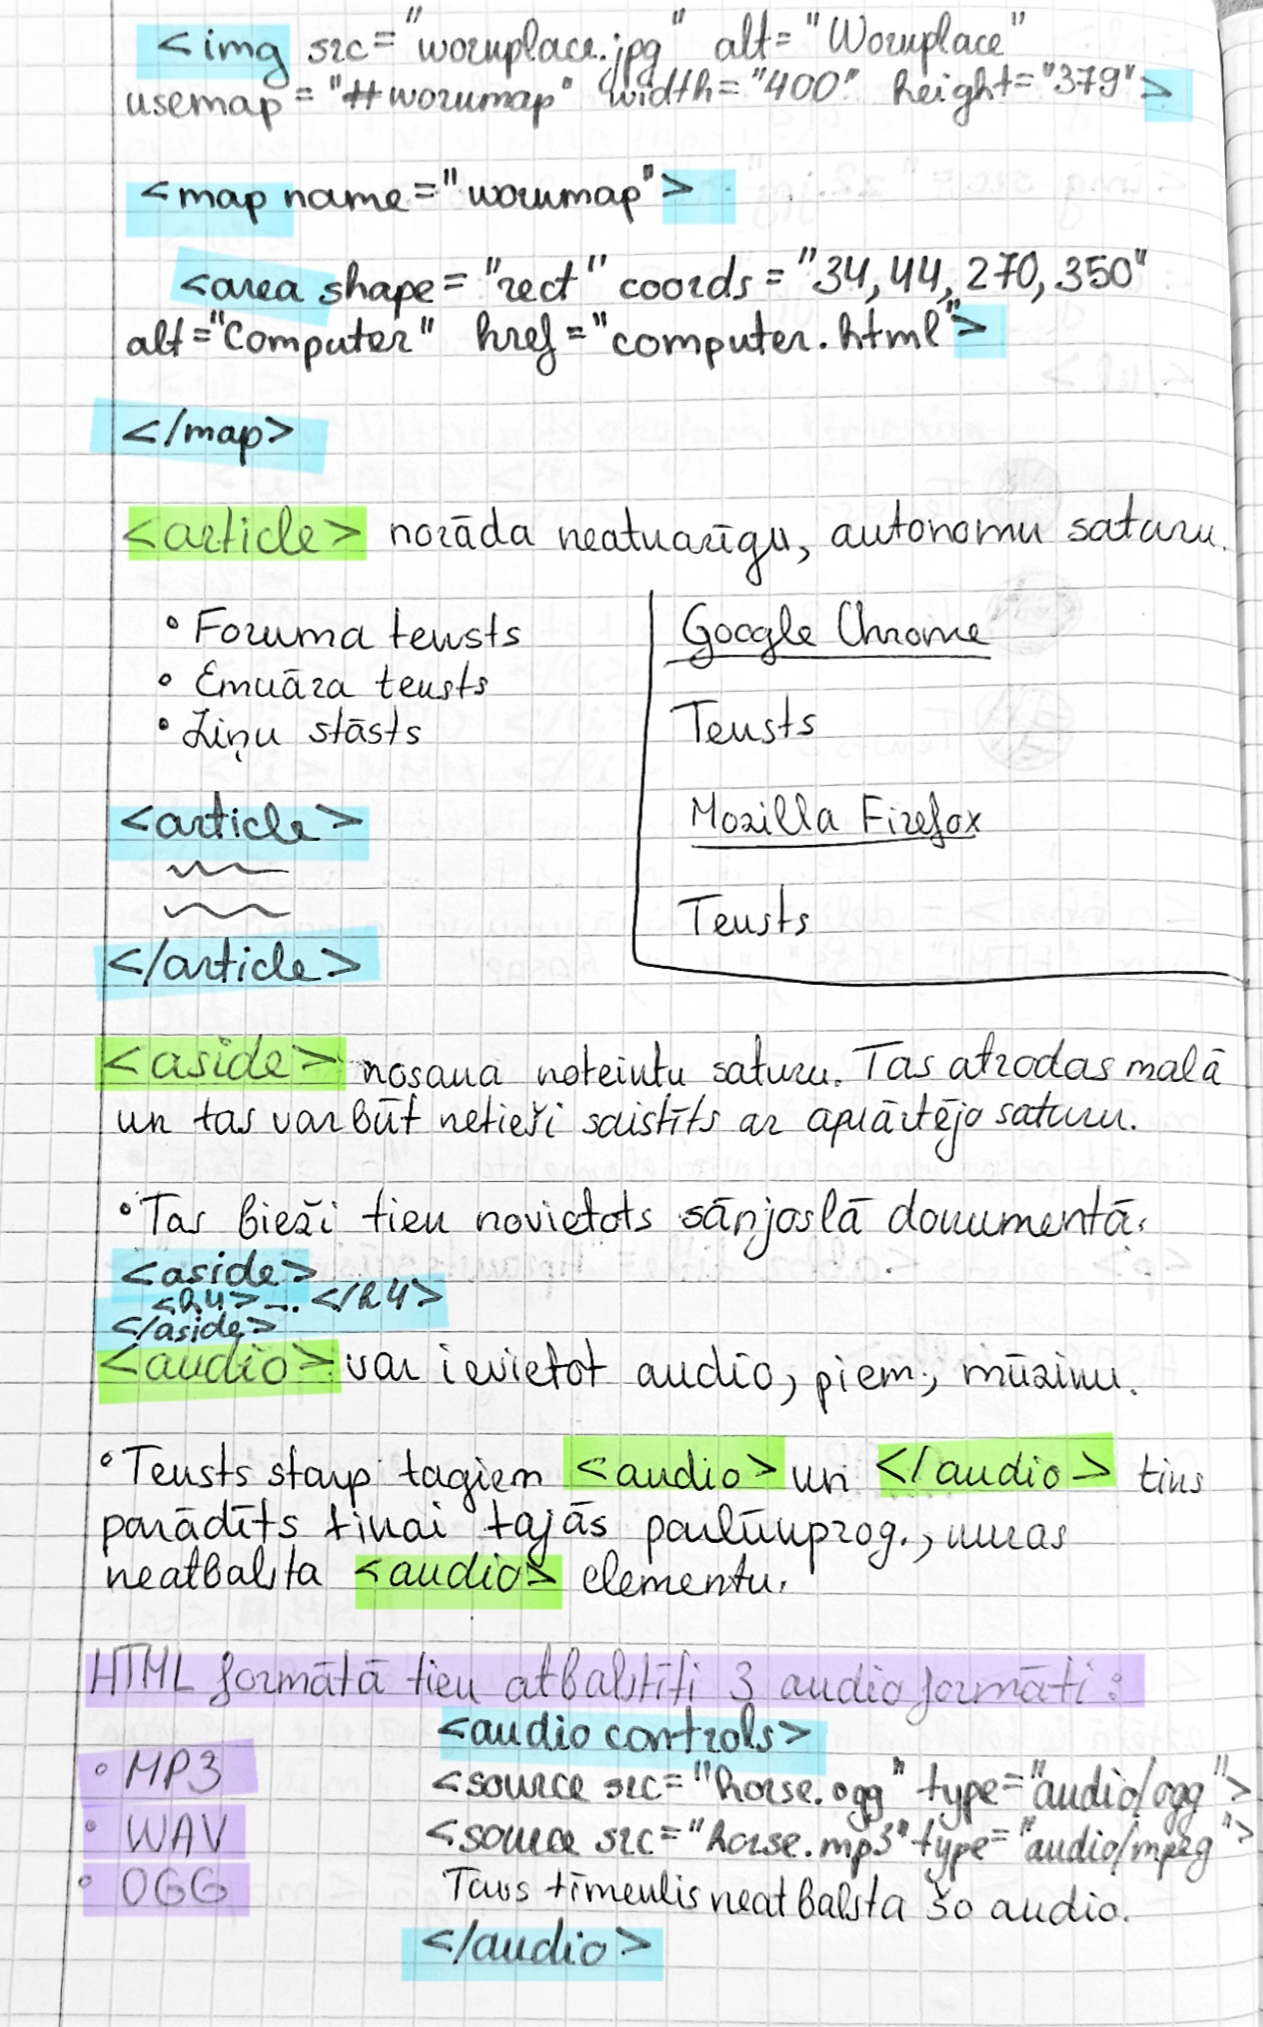 <img src="workplace.jpg" alt="Workplace"
usemap="#workmap" width="400" height="379">
<map name="workmap">
<area shape="rect" coords="34,44,270,350"
alt="Computer" href="computer.html">
</map>
<article> norāda neatkarīgu, autonomu saturu.
• Foruma teksts
• Emuāra teksts
• Ziņu stāsts
<article>
</article>
Google Chrome
Teksts
Mozilla Firefox
Teksts
<aside> nosaka noteiktu saturu. Tas atrodas malā
un tas var būt netieši saistīts ar apkārtējo saturu.
• Tas bieži tiek novietots sānjoslā dokumentā.
<aside>
<h4>... </h4>
</aside>
<audio> var ievietot audio, piem., mūziku.
• Teksts starp tagiem <audio> un </audio> tiks
parādīts tikai tajās pārlūkprog., kuras
neatbalsta <audio> elementu.
HTML formātā tiek atbalstīti 3 audio formāti:
• MP3
• WAV
• OGG
<audio controls>
<source src="horse.ogg" type="audio/ogg">
<source src="horse.mp3" type="audio/mpeg">
Tavs tīmeklis neatbalsta šo audio.
</audio>